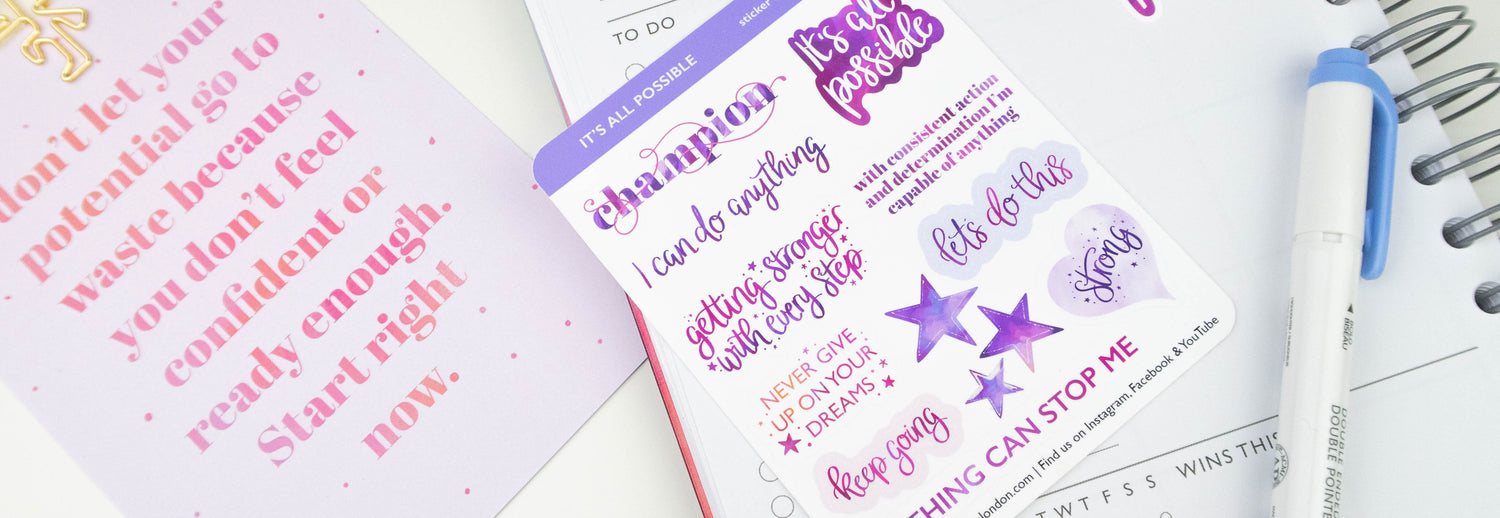 don't let your
potential go to
waste because
you don't feel
confident or
ready enough.
Start right
now.
TO DO
IT'S ALL POSSIBLE
sticker
It's all
possible
champion
I can do anything
with consistent action
and determination I'm
capable of anything
getting stronger
with every step
let's do this
strong
NEVER GIVE
UP ON YOUR
DREAMS
keep going
THING CAN STOP ME
london.com | Find us on Instagram, Facebook & YouTube
T W T F S S
WINS THIS
DOUBLE ENDED
DOUBLE POINTE